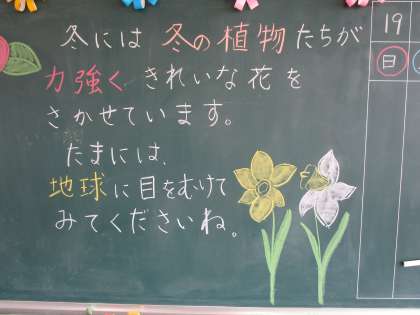 冬には冬の植物たちが
力強くきれいな花を
さかせています。
たまには、
地球に目をむけて
みてくださいね。
19
日